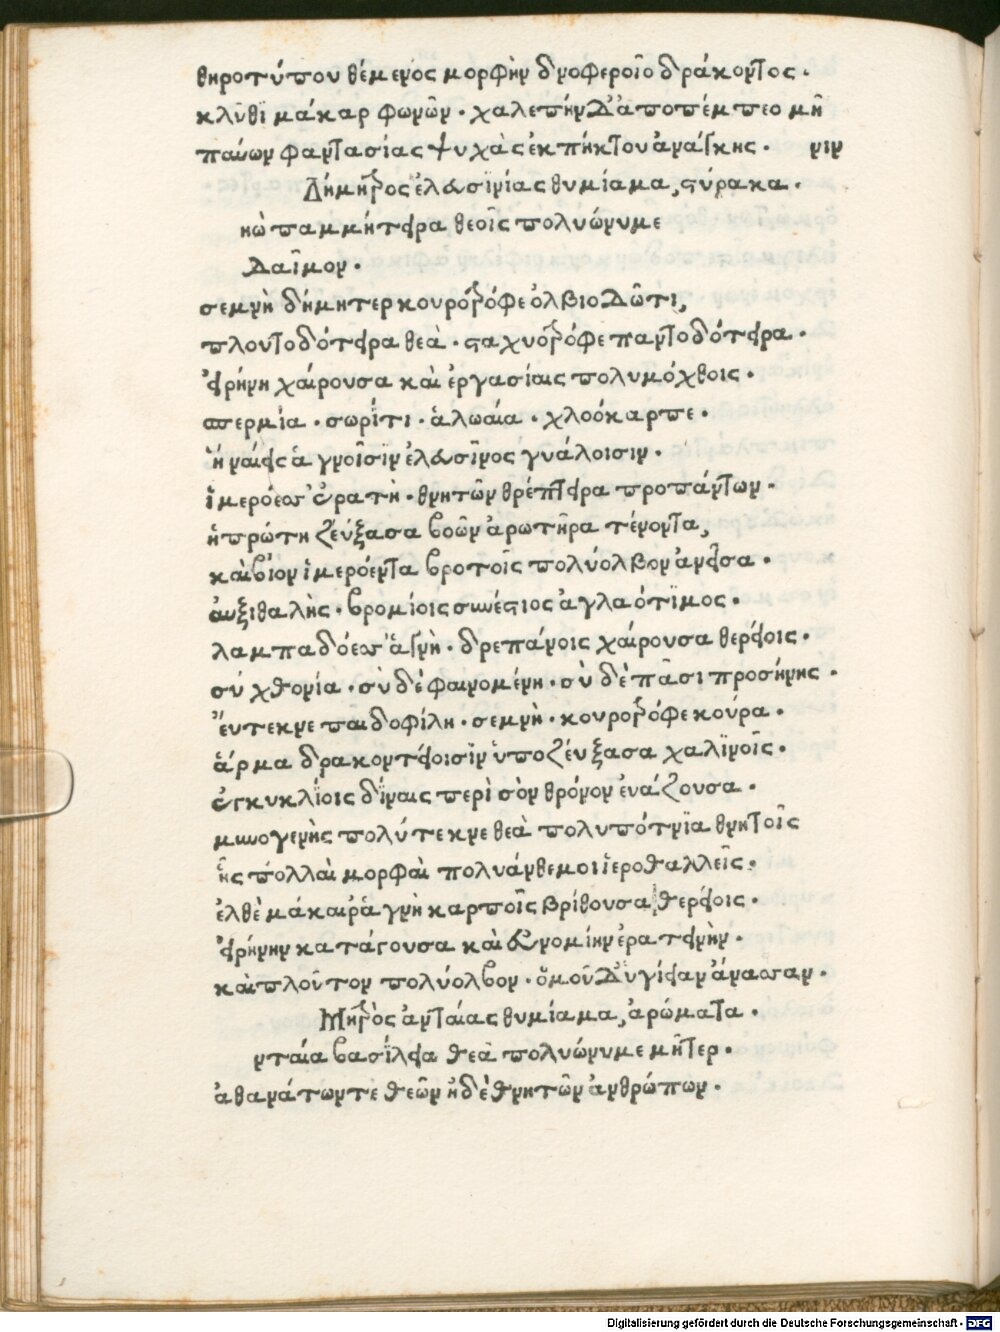 θηροτύπου θέμενος μορφὴν δνοφεροῖο δράκοντος.
κλῦθι μάκαρ φωνῶν. χαλεπὴν δ' ἀποπέμπεο μῆ
παύων φαντασίας ψυχὰς ἐκπήκτου ἀνάγκης. νιν
Δήμητρος ἐλευσινίας θυμίαμα, στύρακα.
ηὼ παμμήτειρα θεοῖς πολυώνυμε
Δαῖμον.
σεμνὴ δήμητερ κουροτρόφε ὀλβιοδῶτι,
πλουτοδότειρα θεὰ. σταχυοτρόφε παντοδότειρα.
εἰρήνη χαίρουσα καὶ ἐργασίαις πολυμόχθοις.
σπερμία. σωρῖτι. ἁλωαία. χλοόκαρπε.
ἣ ναίεις ἁγνοῖσιν ἐλευσῖνος γυάλοισιν.
ἱμερόεσσ' ἐρατὴ. θνητῶν θρέπτειρα προπάντων.
ἡ πρώτη ζεύξασα βοῶν ἀρωτῆρα τένοντα,
καὶ βίον ἱμερόεντα βροτοῖς πολύολβον ἀνεῖσα.
αὐξιθαλὴς. βρομίοις συνέστιος ἀγλαότιμος.
λαμπαδόεσσ' ἁγνὴ. δρεπάνοις χαίρουσα θερείοις.
σύ χθονία. σὺ δὲ φαινομένη. σὺ δὲ πᾶσι προσήνης.
εὔτεκνε παιδοφίλη. σεμνὴ. κουροτρόφε κούρα.
ἅρμα δρακοντείοισιν ὑποζεύξασα χαλινοῖς.
ἐγκυκλίοις δίναις περὶ σὸν θρόνον ἐνάζουσα.
μουνογενὴς πολύτεκνε θεὰ πολυπότνια θνητοῖς
ἧς πόλλαὶ μορφαὶ πολυάνθεμοι ἱεροθαλλεῖς.
ἐλθὲ μάκαιρ' ἁγνὴ καρποῖς βρίθουσα, θερείοις.
εἰρήνην κατάγουσα καὶ εὐνομίην ἐρατεινὴν.
καὶ πλοῦτον πολύολβον. ὅμοῦ δ' ὑγίειαν ἄνασσαν.
Μητρὸς ἀνταίας θυμίαμα, ἀρώματα.
νταία βασίλεια θεὰ πολυώνυμε μῆτερ.
ἀθανάτωντε θεῶν ἠδὲ θνητῶν ἀνθρώπων.
Digitalisierung gefördert durch die Deutsche Forschungsgemeinschaft - DFG